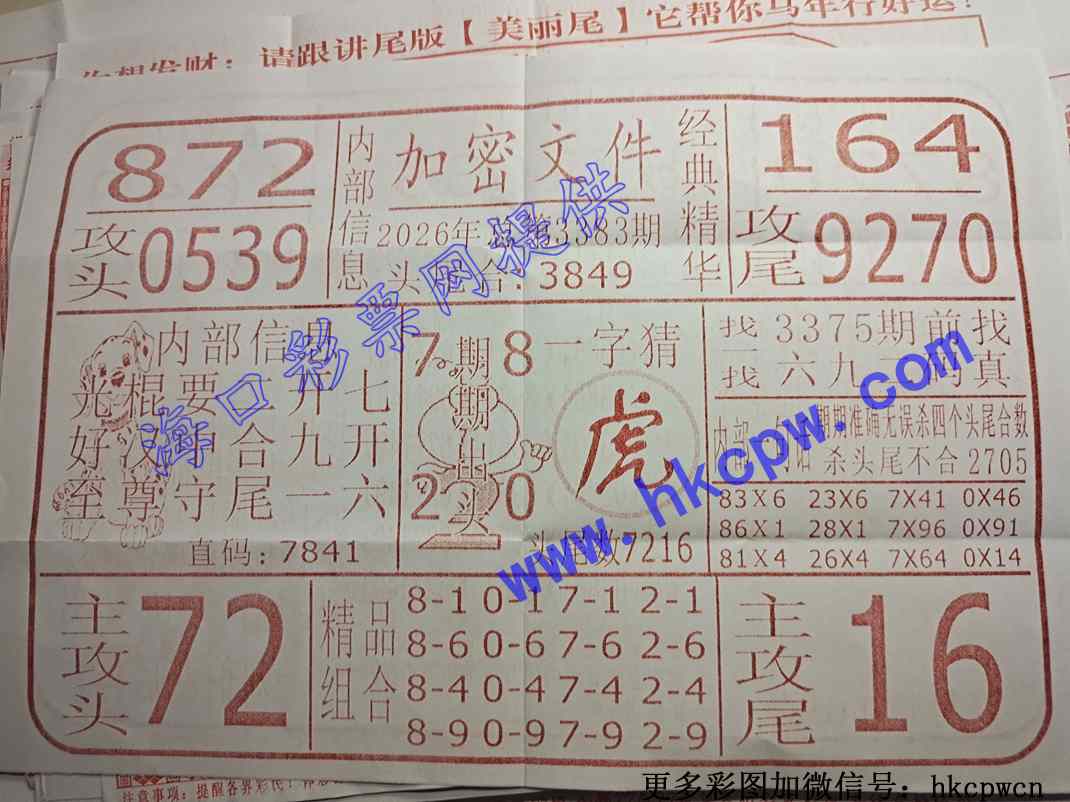 请跟讲尾版【美丽尾】它帮你马年行好运!
872
攻头 0539
内部信息
加密文件
经典精华
2026年 第3383期
头 合:3849
164
攻尾 9270
内部信息
光棍要二开七
好汉中合九开
至尊守尾一六
直码:7841
7 8
期期出头
2 0
一字猜
虎
头尾数7216
找 3375期前找
找 六九二码真
内部 期期准确无误杀四个头尾合数
杀头尾不合2705
83X6 23X6 7X41 0X46
86X1 28X1 7X96 0X91
81X4 26X4 7X64 0X14
主攻头 72
精品组合
8-1 0-1 7-1 2-1
8-6 0-6 7-6 2-6
8-4 0-4 7-4 2-4
8-9 0-9 7-9 2-9
主攻尾 16
海口彩票网提供
www.hkcpw.com
注意事项:提醒各界彩民!
更多彩图加微信号:hkcpwcn